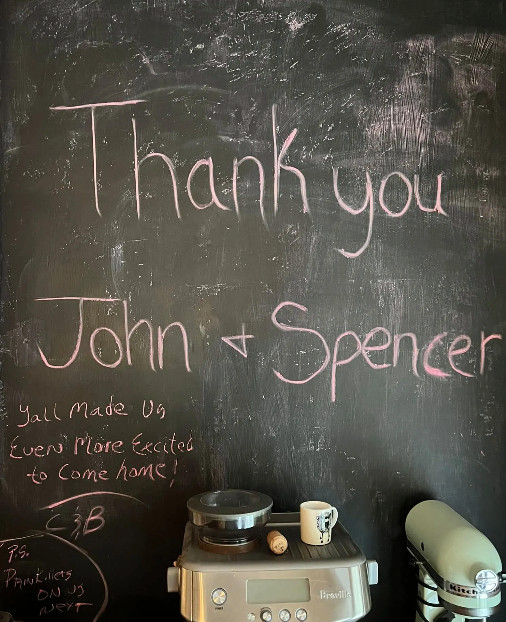 Thank you
John & Spencer
Yall Made Us
Even More Excited
to Come home!
C&B
P.S.
Painkillers
ON US
NEXT
Breville
Kitchen